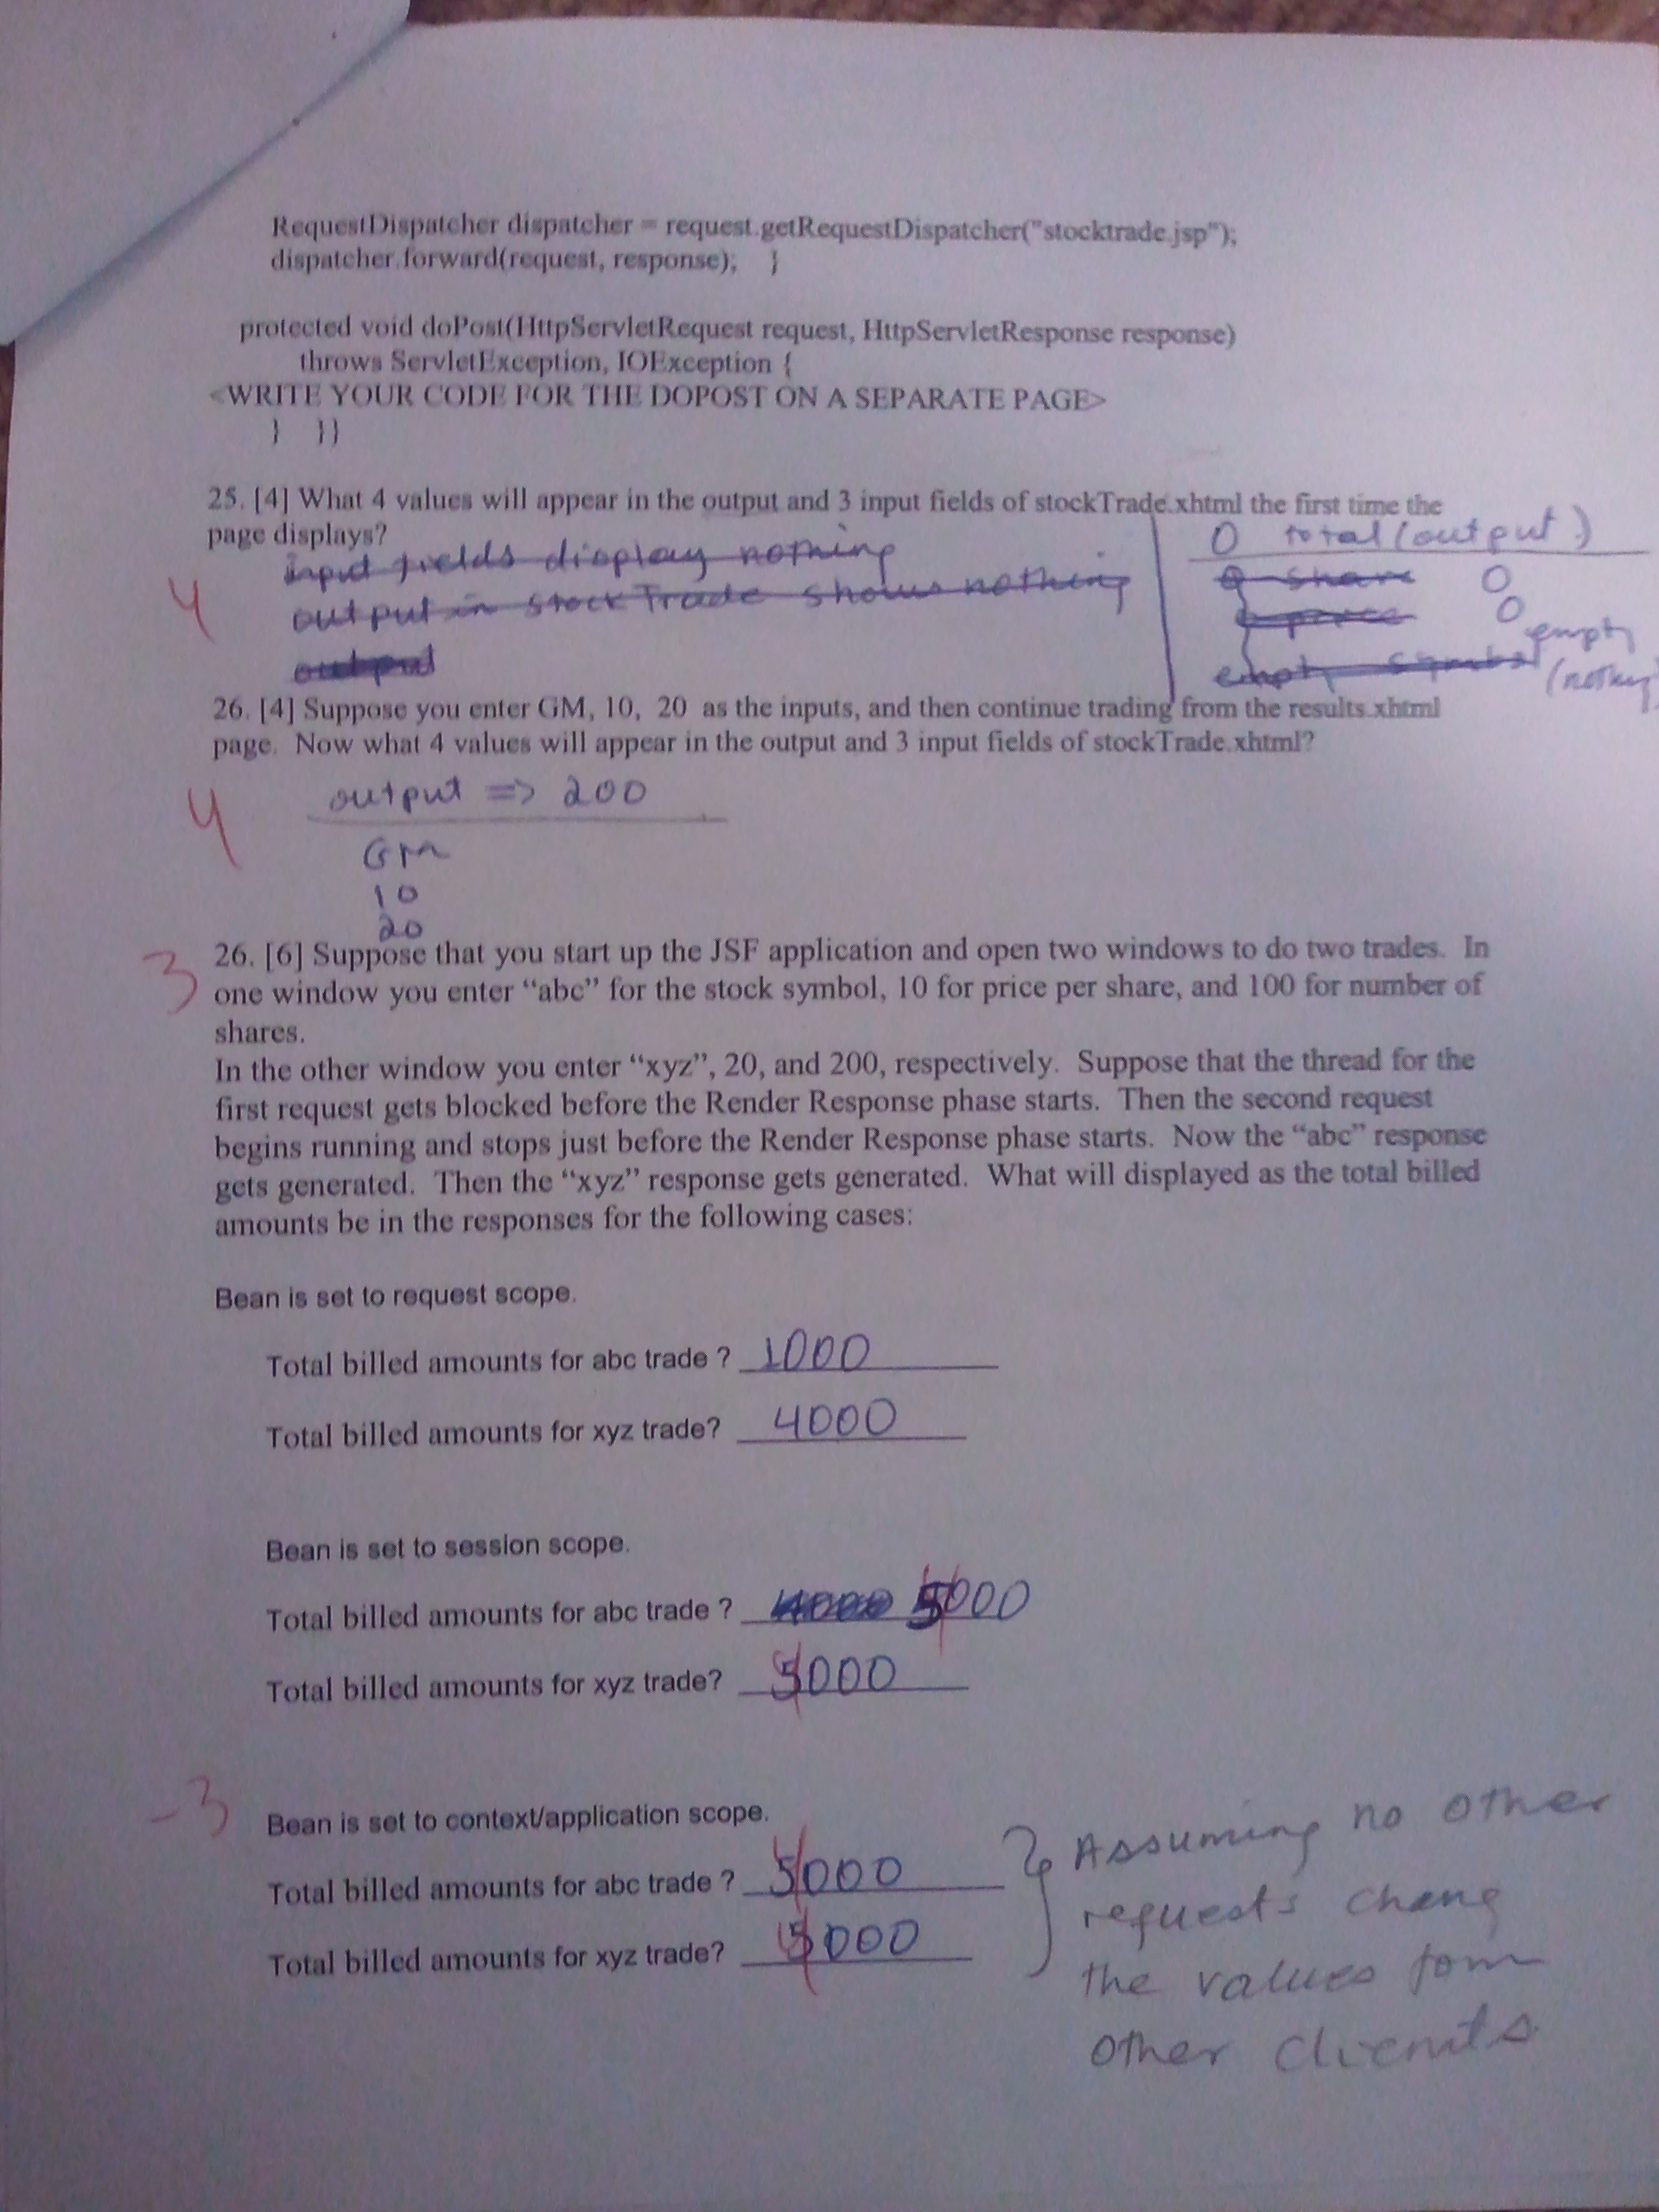 RequestDispatcher dispatcher = request.getRequestDispatcher("stocktrade.jsp");
dispatcher.forward(request, response); }
protected void doPost(HttpServletRequest request, HttpServletResponse response)
throws ServletException, IOException {
<WRITE YOUR CODE FOR THE DOPOST ON A SEPARATE PAGE>
} }}
25. [4] What 4 values will appear in the output and 3 input fields of stockTrade.xhtml the first time the
page displays?
input fields display nothing
output in stock Trade shows nothing
output
4
0 total (output)
0 share 0
0 price 0
empty symbol empty
26. [4] Suppose you enter GM, 10, 20 as the inputs, and then continue trading from the results.xhtml
page. Now what 4 values will appear in the output and 3 input fields of stockTrade.xhtml?
4
output => 200
GM
10
20
3
26. [6] Suppose that you start up the JSF application and open two windows to do two trades. In
one window you enter “abc” for the stock symbol, 10 for price per share, and 100 for number of
shares.
In the other window you enter “xyz”, 20, and 200, respectively. Suppose that the thread for the
first request gets blocked before the Render Response phase starts. Then the second request
begins running and stops just before the Render Response phase starts. Now the “abc” response
gets generated. Then the “xyz” response gets generated. What will displayed as the total billed
amounts be in the responses for the following cases:
Bean is set to request scope.
Total billed amounts for abc trade ? 1000
Total billed amounts for xyz trade? 4000
Bean is set to session scope.
Total billed amounts for abc trade ? 4000 5000
Total billed amounts for xyz trade? 5000
-3
Bean is set to context/application scope.
Total billed amounts for abc trade ? 5000
Total billed amounts for xyz trade? 5000
Assuming no other
requests chang
the values fom
other clients